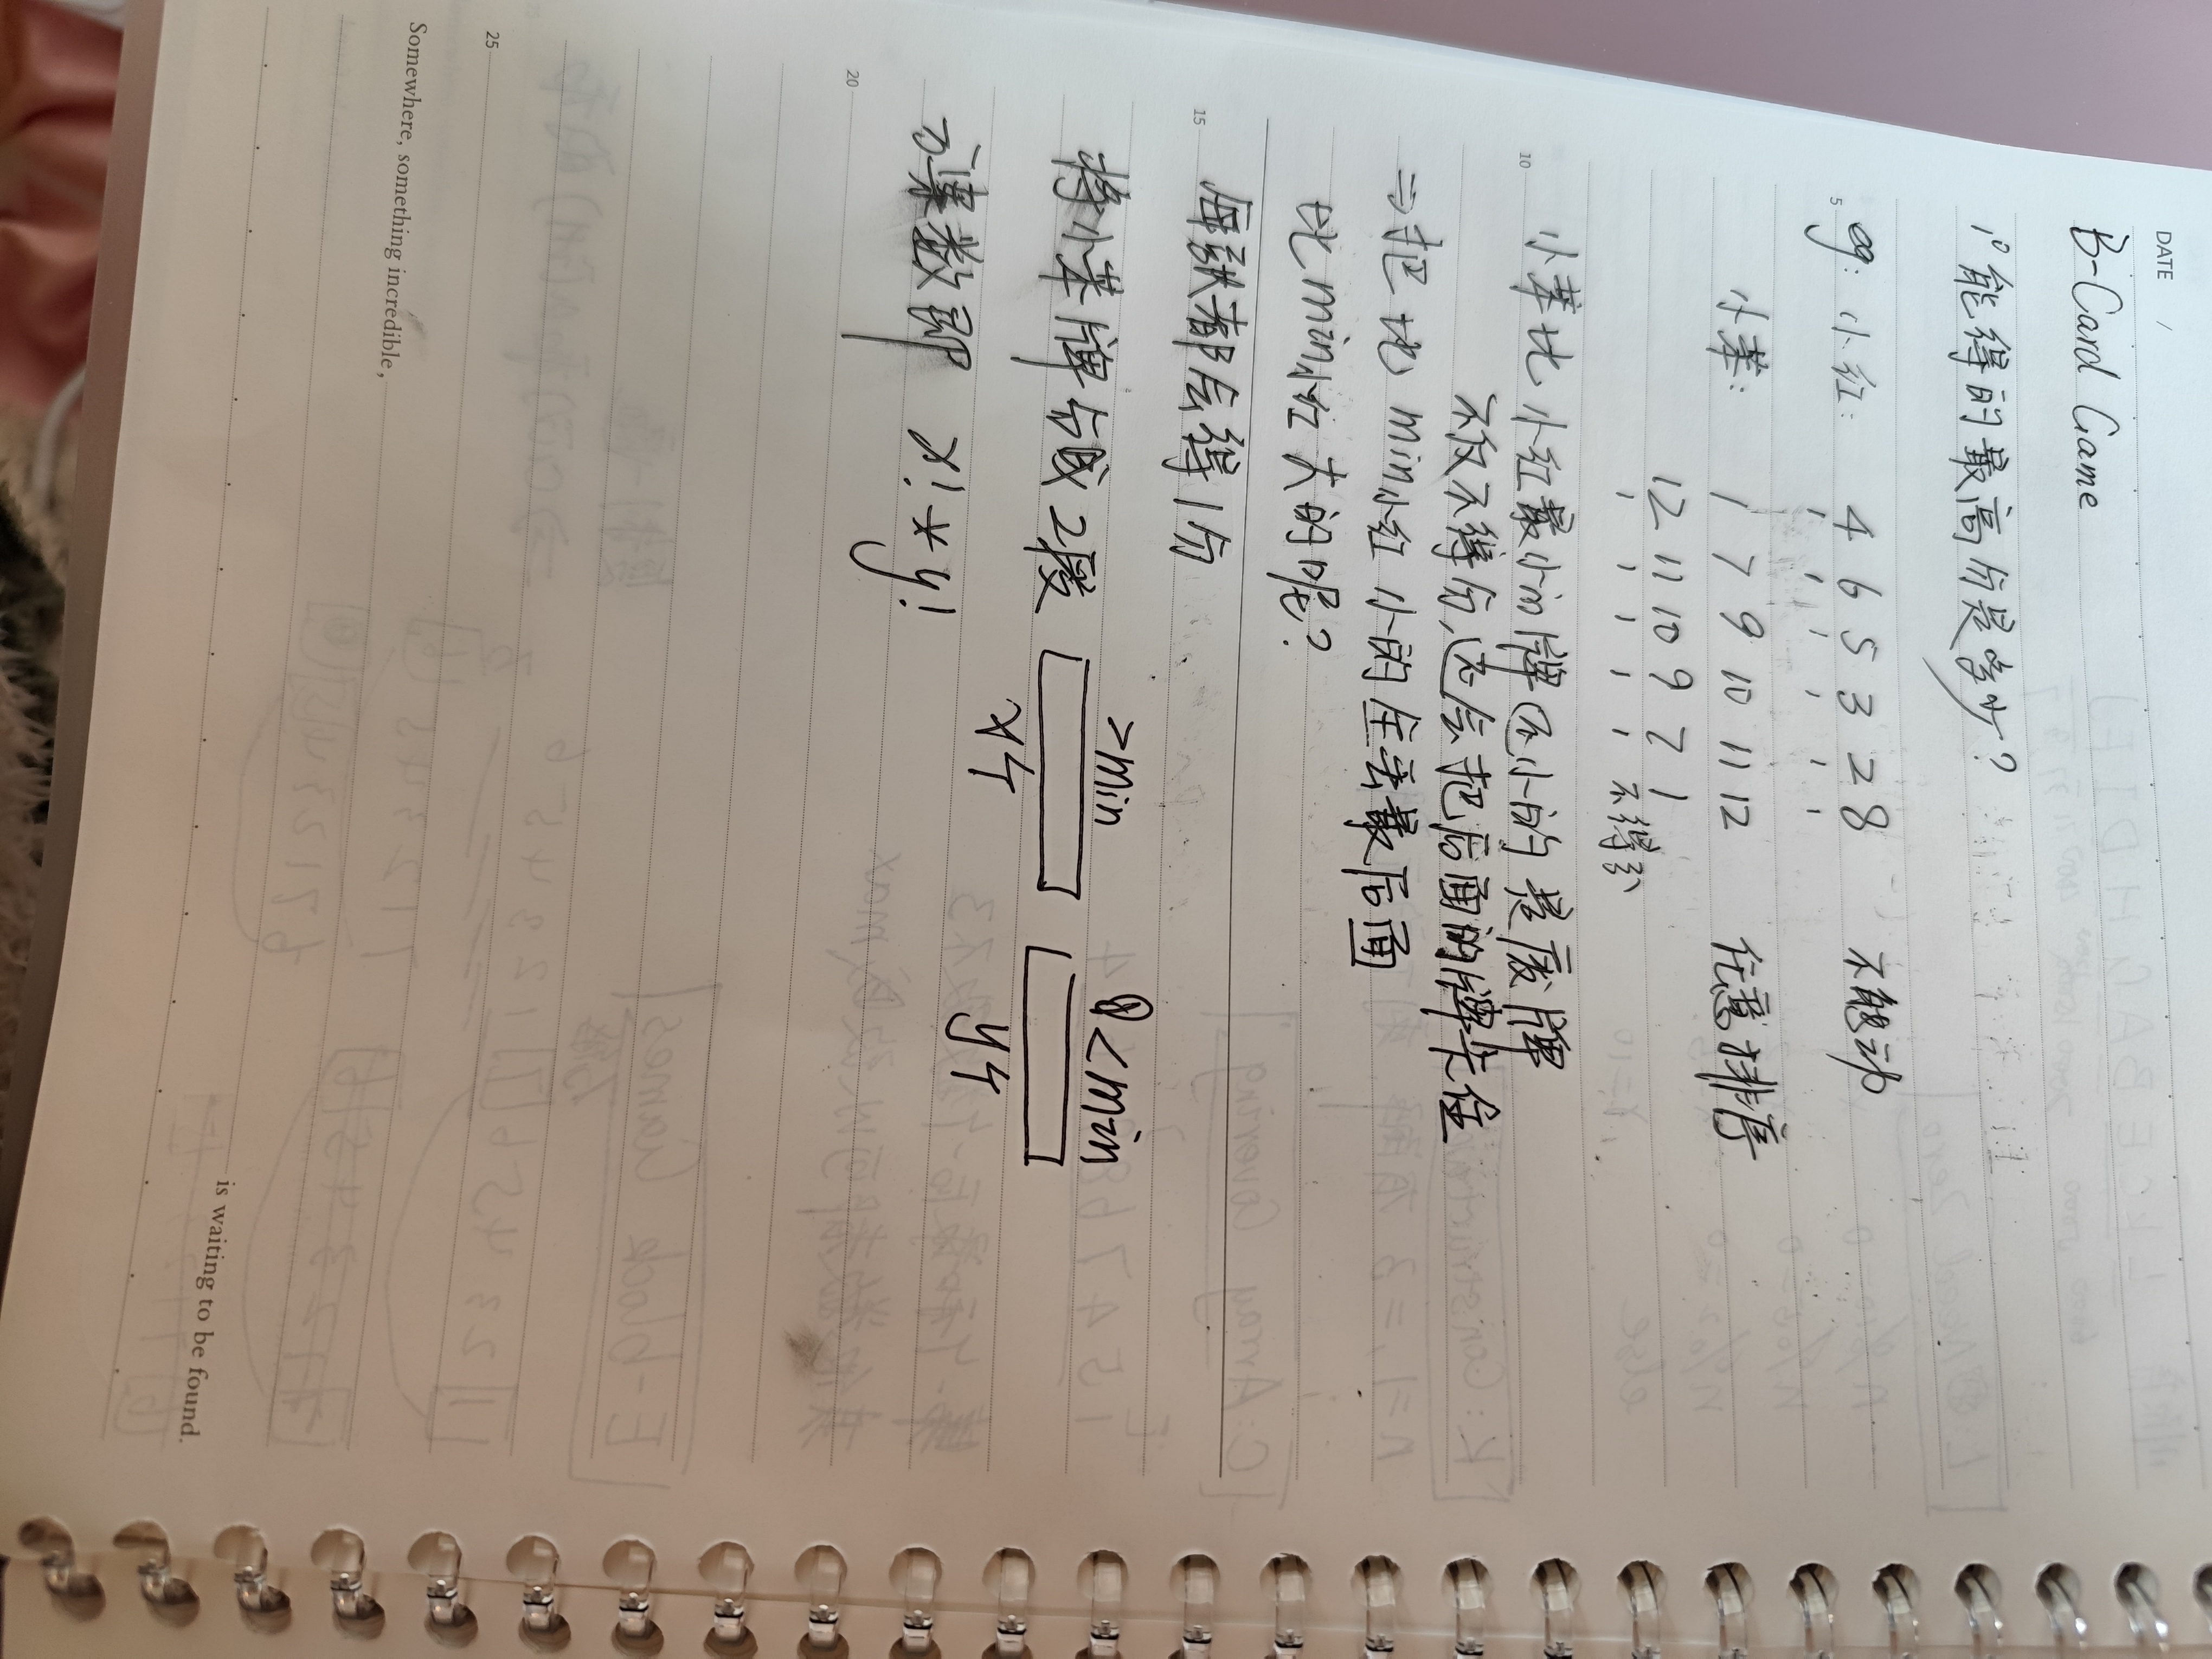 DATE /
B-Card Game
1° 能得的最高分是多少?
5
eg: 小红: 4 6 5 3 2 8 不能动
小苯: 1 7 9 10 11 12 任意排序
12 11 10 9 7 1 不得分
10
小苯比小红最小的牌还小的是废牌
不仅不得分,还会把后面的牌卡住
⇒把比min小红小的全丢最后面
比min小红大的呢?
15
每张都会得1分
>min <min
将小苯牌分成2段
x个 y个
20
方案数即 x! * y!
25
Somewhere, something incredible,
is waiting to be found.